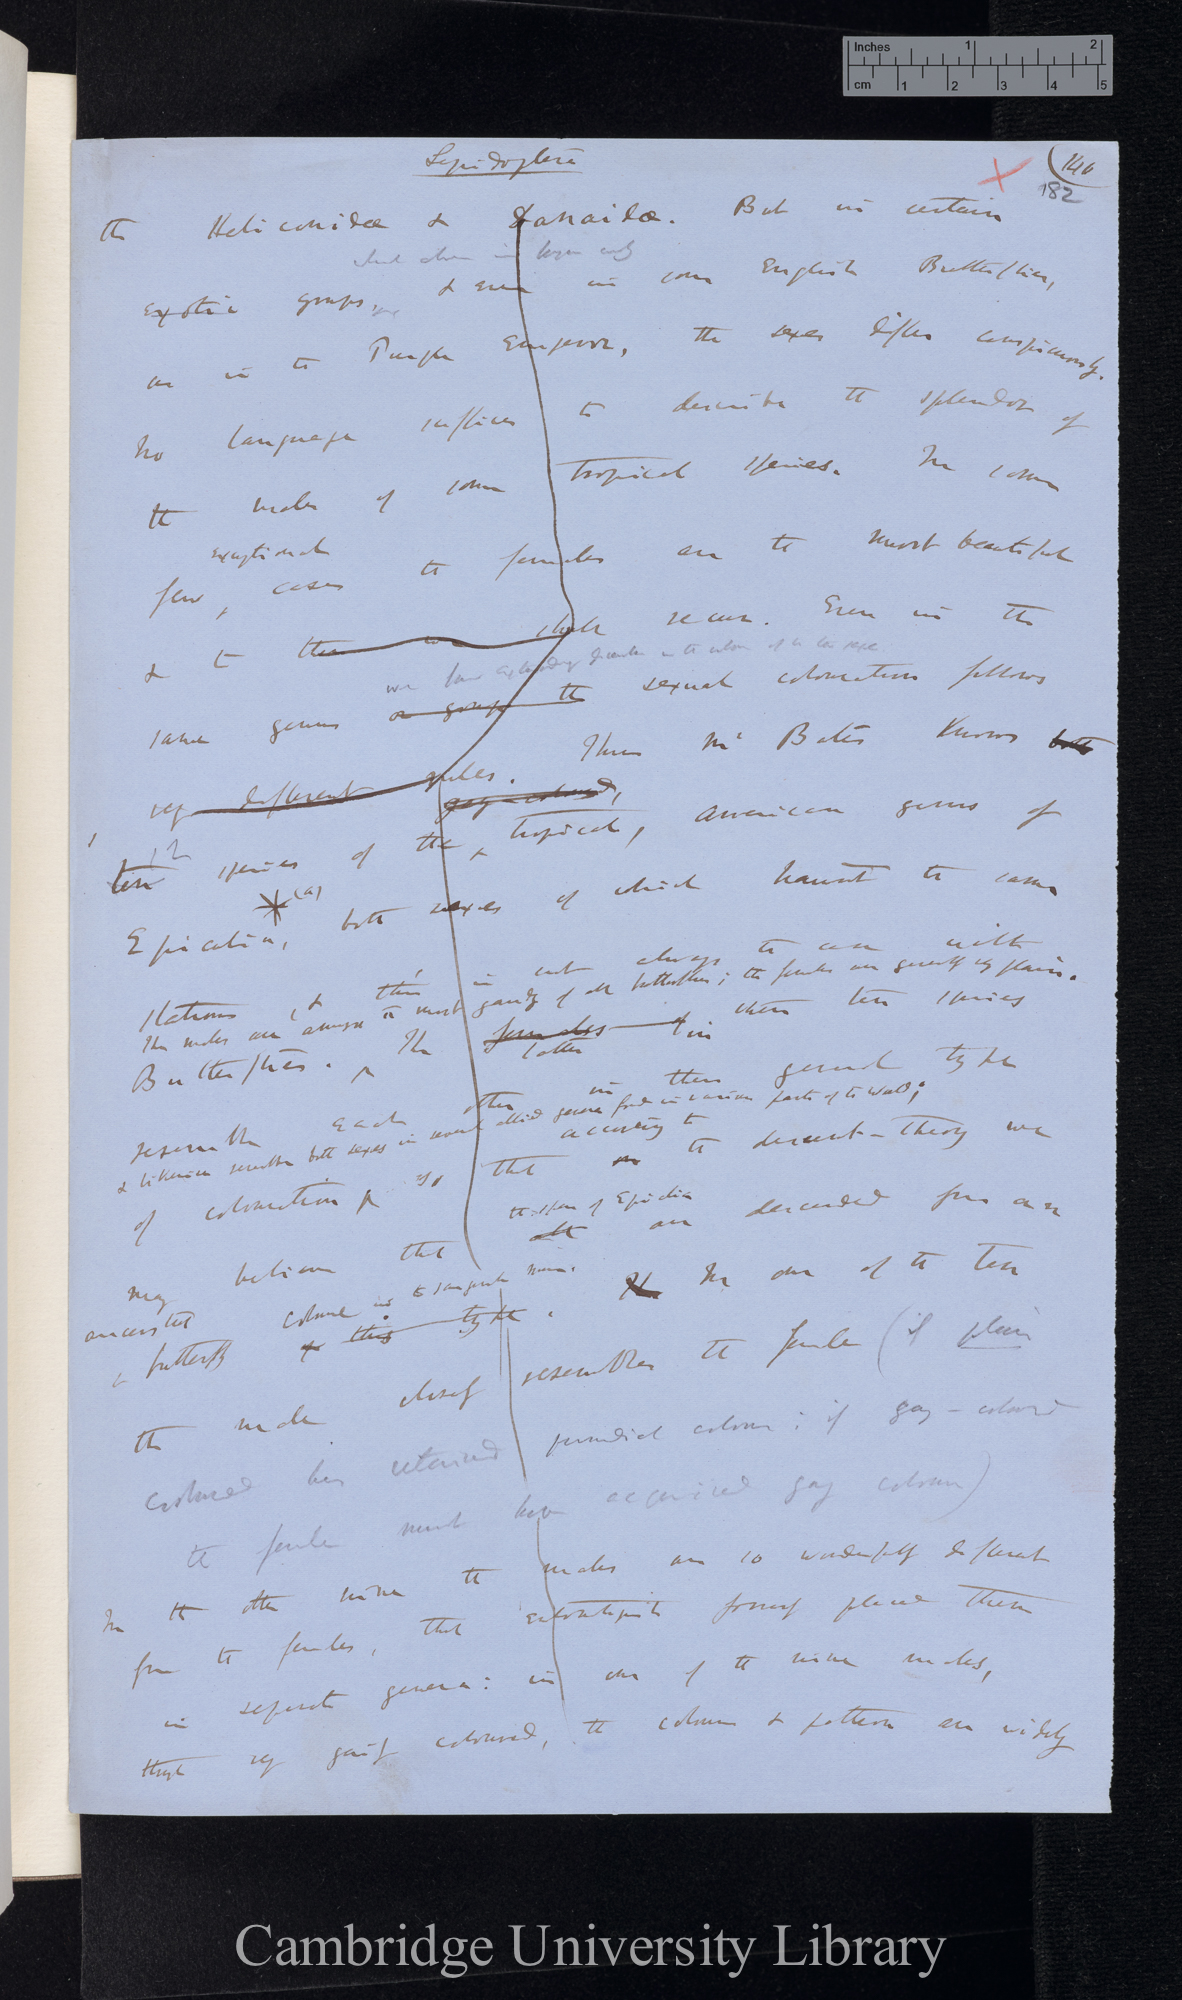 Inches 1 2
cm 1 2 3 4 5
Lepidoptera
(146
182
the Heliconidæ & Danaidæ. But in certain
exotic groups, & even in some English Butterflies,
as in the Purple Emperor, the sexes differ conspicuously.
No language suffices to describe the splendor of
the males of some tropical species. In some
exceptional
few, cases the females are the most beautiful
& to these we shall recur. Even in the
same genus or group the sexual colouration follows
very different rules. Thus Mr Bates knows both
gay-coloured,
12
ten species of the tropical, American genus of
(a)
Epicalia, both sexes of which haunt the same
stations, & this is not always the case with
The males are amongst the most gaudy of all butterflies; the females are generally very plain.
Butterflies. The females in
latter
these ten species
resemble each other in their general type
& likewise resemble both sexes in several allied genera found in various parts of the world;
of colouration so that on
according to
the descent-theory we
the species of Epicalia
may believe that all are descended from an
ancestral
coloured in the same general manner.
butterfly of this type. In one of the ten
the male closely resembles the female (if plain
coloured has retained primordial colour: if gay-coloured
the female must have acquired gay colours)
In the other nine the males are so wonderfully different
from the females, that entomologists formerly placed them
in separate genera: in one of the nine males,
though very gaily coloured, the colours & pattern are widely
Cambridge University Library